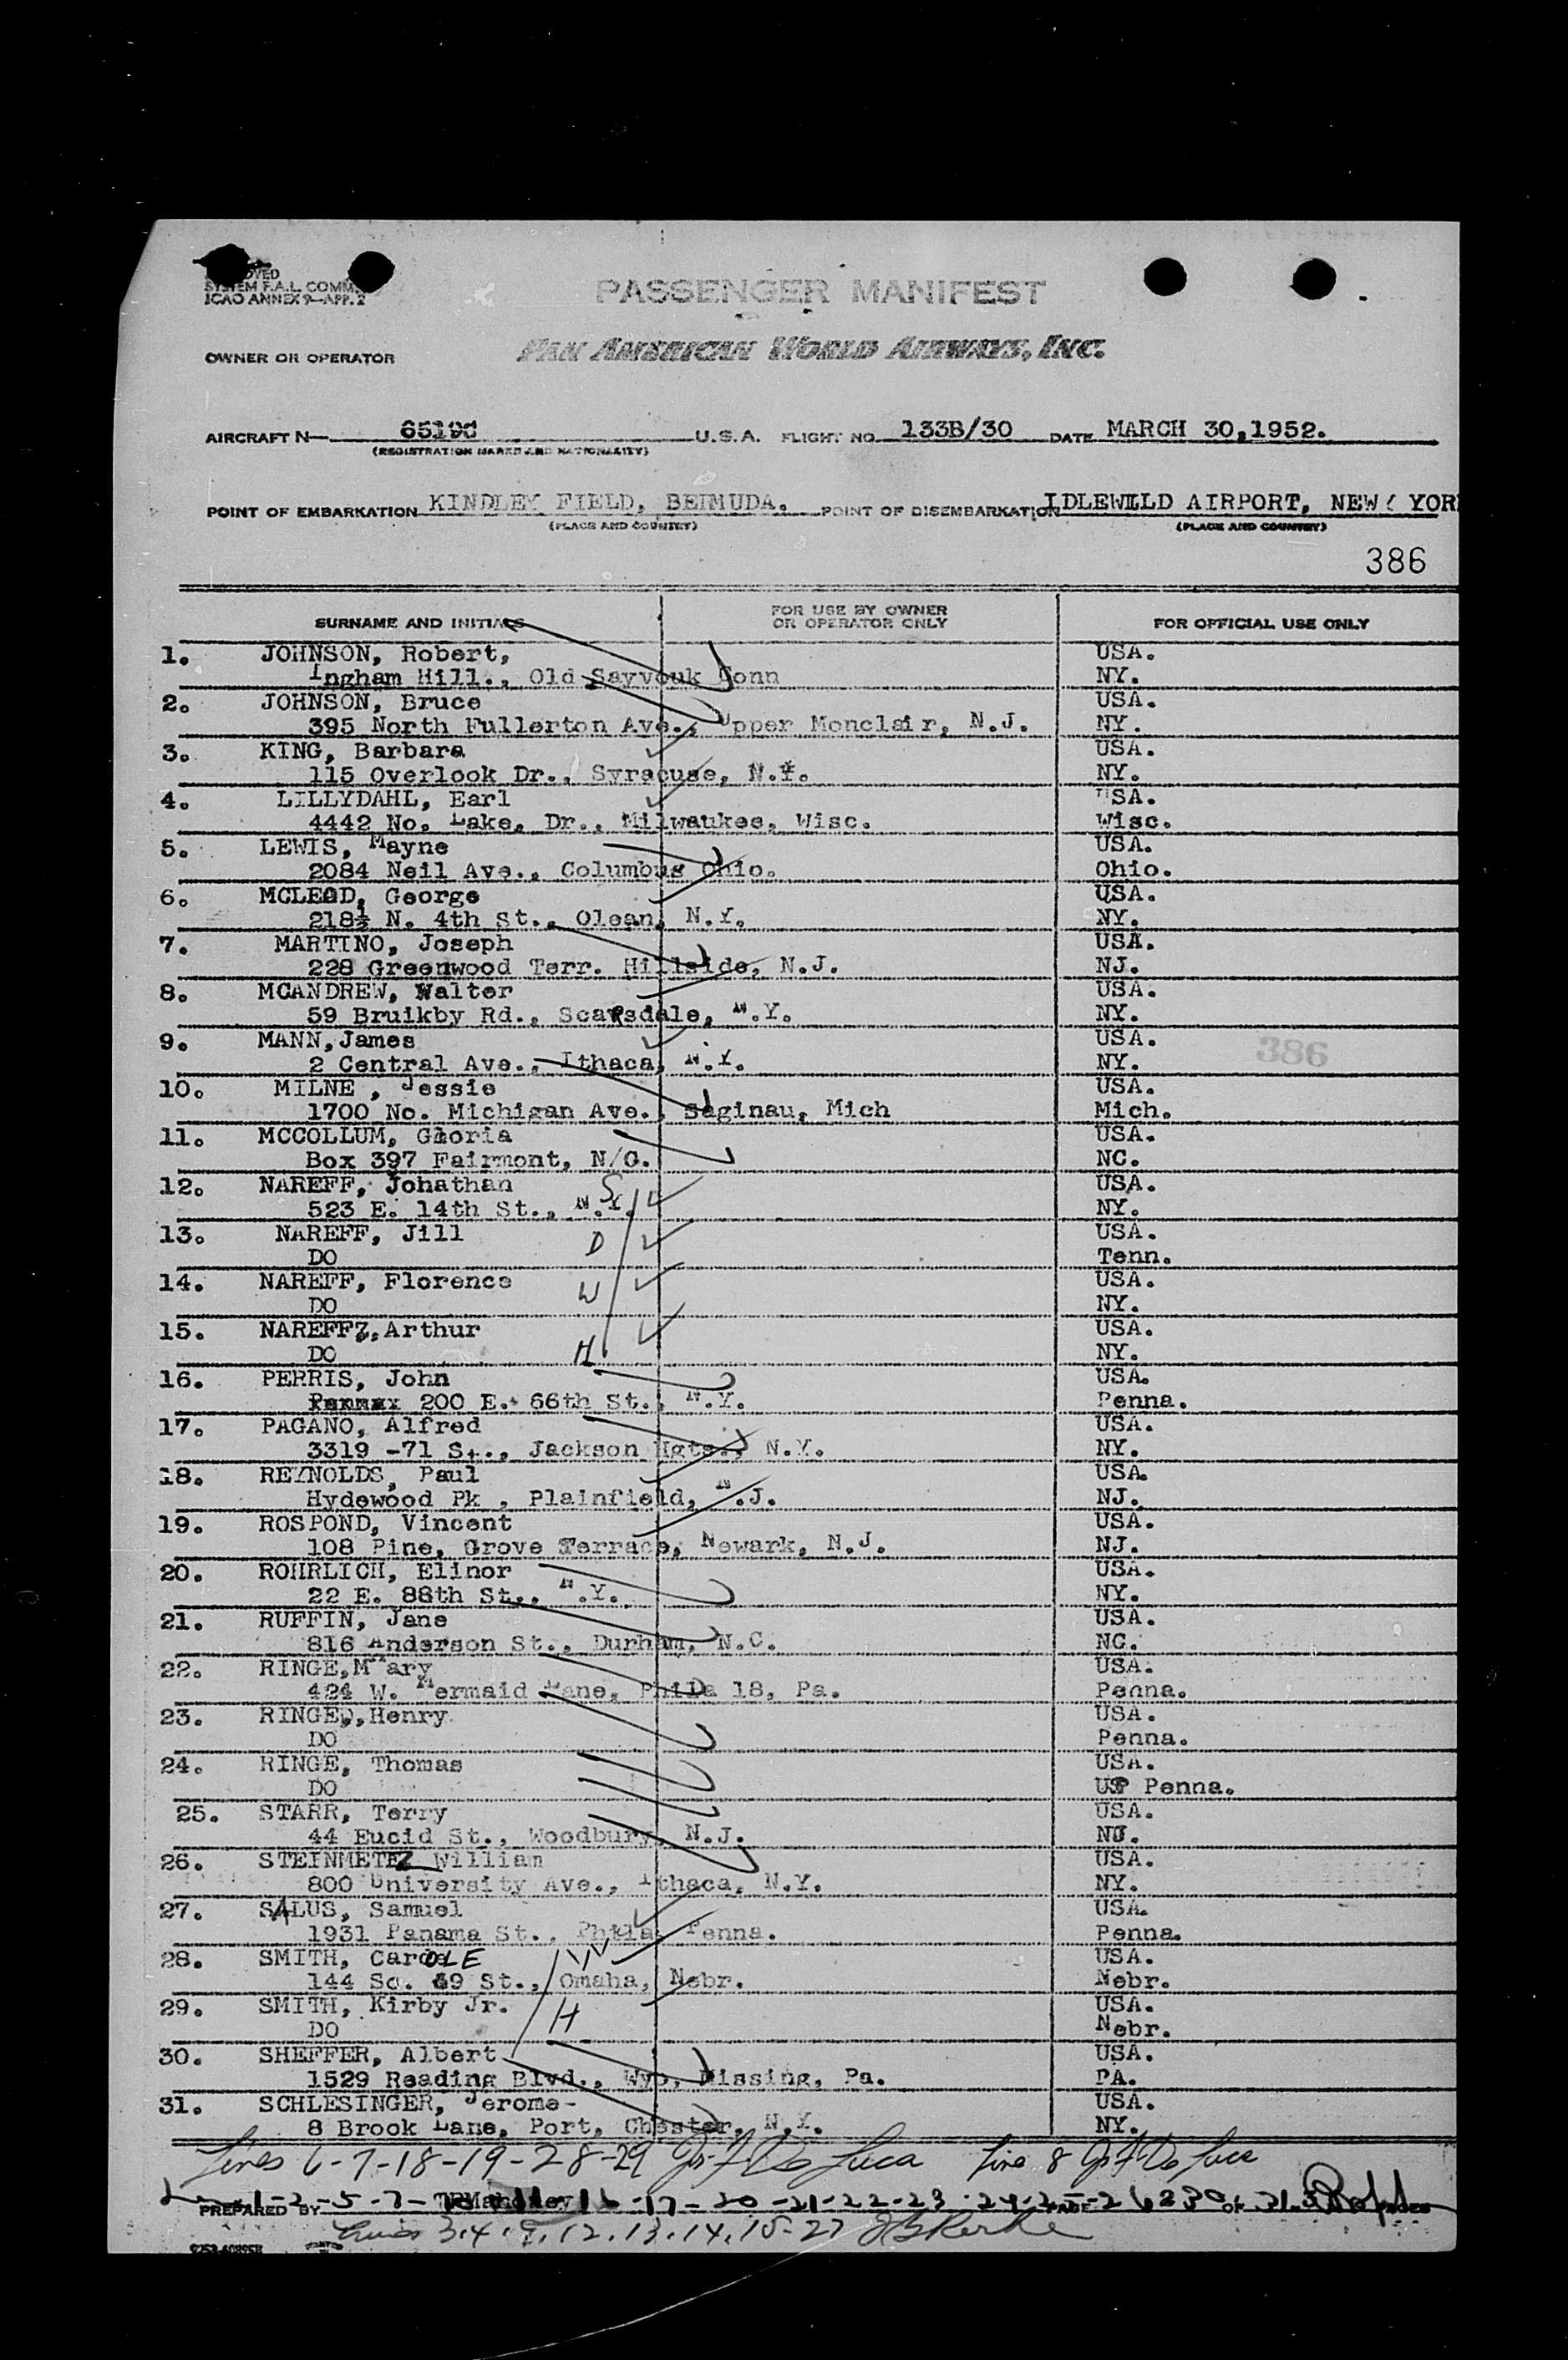 SYSTEM F.A.L. COMM.
ICAO ANNEX 9-APP. 2
PASSENGER MANIFEST
OWNER OR OPERATOR PAN AMERICAN WORLD AIRWAYS, INC.
AIRCRAFT N- U.S.A. FLIGHT NO. 133B/30 DATE MARCH 30,1952.
(REGISTRATION MARKS AND NATIONALITY)
POINT OF EMBARKATION KINDLEY FIELD, BERMUDA. POINT OF DISEMBARKATION IDLEWILD AIRPORT, NEW YOR
(PLACE AND COUNTRY) (PLACE AND COUNTRY)
386
SURNAME AND INITIALS FOR USE BY OWNER OR OPERATOR ONLY FOR OFFICIAL USE ONLY
1. JOHNSON, Robert, USA.
Ingham Hill., Old Sayvouk Conn NY.
2. JOHNSON, Bruce USA.
395 North Fullerton Ave., Upper Monclair, N.J. NY.
3. KING, Barbara USA.
115 Overlook Dr., Syracuse, N.Y. NY.
4. LILLYDAHL, Earl USA.
4442 No. Lake, Dr., Milwaukee, Wisc. Wisc.
5. LEWIS, Mayne USA.
2084 Neil Ave., Columbus Ohio. Ohio.
6. MCLEOD, George USA.
218½ N. 4th St., Olean, N.Y. NY.
7. MARTINO, Joseph USA.
228 Greenwood Terr. Hillside, N.J. NJ.
8. MCANDREW, Walter USA.
59 Bruikby Rd., Scarsdale, N.Y. NY.
9. MANN, James USA.
2 Central Ave., Ithaca, N.Y. NY.
386
10. MILNE , Jessie USA.
1700 No. Michigan Ave., Saginau, Mich Mich.
11. MCCOLLUM, Gloria USA.
Box 397 Fairmont, N/C. NC.
12. NAREFF, Johathan S USA.
523 E. 14th St., N.Y. NY.
13. NAREFF, Jill D USA.
DO Tenn.
14. NAREFF, Florence W USA.
DO NY.
15. NAREFF, Arthur H USA.
DO NY.
16. PERRIS, John USA.
200 E. 66th St., N.Y. Penna.
17. PAGANO, Alfred USA.
3319 -71 St., Jackson Hgts., N.Y. NY.
18. REYNOLDS, Paul USA.
Hydewood Pk , Plainfield, N.J. NJ.
19. ROSPOND, Vincent USA.
108 Pine, Grove Terrace, Newark, N.J. NJ.
20. ROHRLICH, Elinor USA.
22 E. 88th St., N.Y. NY.
21. RUFFIN, Jane USA.
816 Anderson St., Durham, N.C. NC.
22. RINGE, Mary USA.
424 W. Mermaid Lane, Phila 18, Pa. Penna.
23. RINGE, Henry USA.
DO Penna.
24. RINGE, Thomas USA.
DO Penna.
25. STARR, Terry USA.
44 Eucid St., Woodbury, N.J. NJ.
26. STEINMETZ William USA.
800 University Ave., Ithaca, N.Y. NY.
27. SALUS, Samuel USA.
1931 Panama St., Phila, Penna. Penna.
28. SMITH, CarOLE W USA.
144 So. 39 St., Omaha, Nebr. Nebr.
29. SMITH, Kirby Jr. H USA.
DO Nebr.
30. SHEFFER, Albert USA.
1529 Reading Blvd., Wyo, Missing, Pa. PA.
31. SCHLESINGER, Jerome- USA.
8 Brook Lane, Port, Chester, N.Y. NY.
Lines 6-7-18-19-28-29 De Luca Line 8 De Luca
PREPARED BY
Lines 3.4.9.12.13.14.15-27